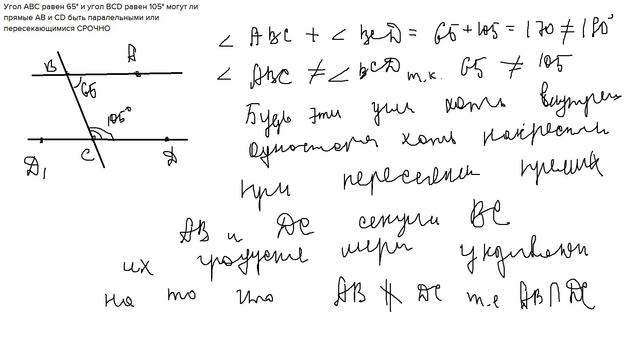 Угол ABC равен 65° и угол BCD равен 105° могут ли
прямые AB и CD быть паралельными или
пересекающимися СРОЧНО
∠ ABC + ∠ BCD = 65+105 = 170 ≠ 180°
∠ ABC ≠ ∠ BCD т.к. 65 ≠ 105
B
A
65
105°
D₁
C
D
Будь эти углы хоть внутрен
односторон хоть накрестл
при пересечении прямых
AB и DC секущей BC
их градусные меры указывают
на то что AB ∦ DC т.е AB ∩ DC